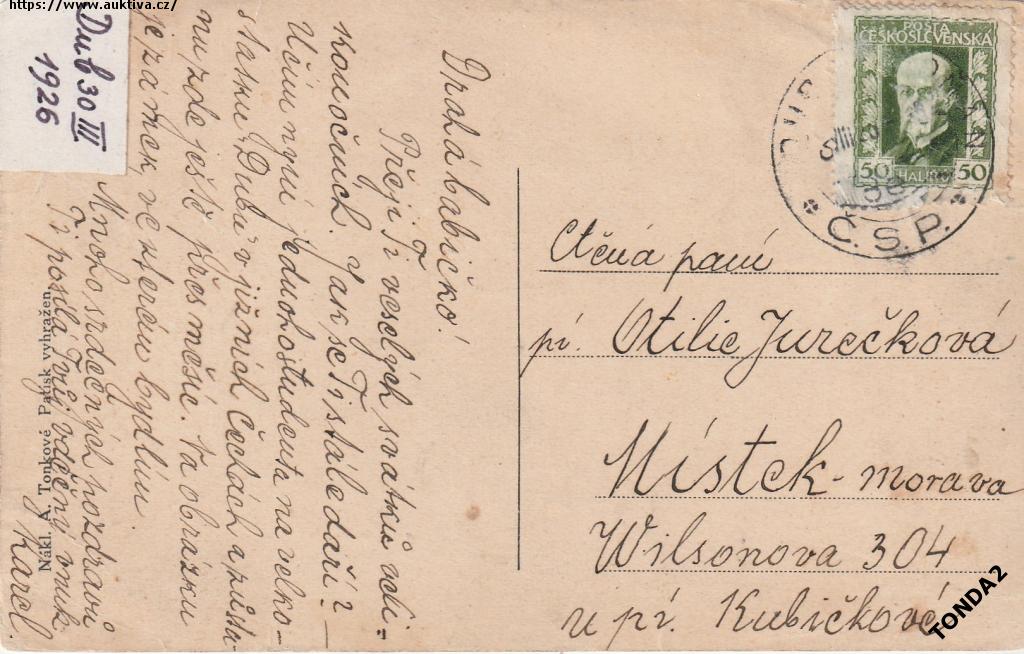 https://www.auktiva.cz/
Dub 30 III
1926
Drahá babičko!
Přeji Ti veselých svátků veli-
konočních. Jak se Ti stále daří?
Učím nyní jednoho studenta na velko-
statku Dubu v jižních Čechách a zůsta-
nu zde ještě přes měsíc. Na obrázku
je zámek ve kterém bydlím.
Mnoho srdečných pozdravů
Ti posílá Tvůj vděčný vnuk
Karel
Nákl. A. Tonkové Patisk vyhražen.
POŠTA
ČESKOSLOVENSKA
50 HALÉŘŮ 50
Č.S.P.
Ctěná paní
pí. Otilie Jurečková
Místek - Morava
Wilsonova 304
u pí. Kubičkové
TONDA2